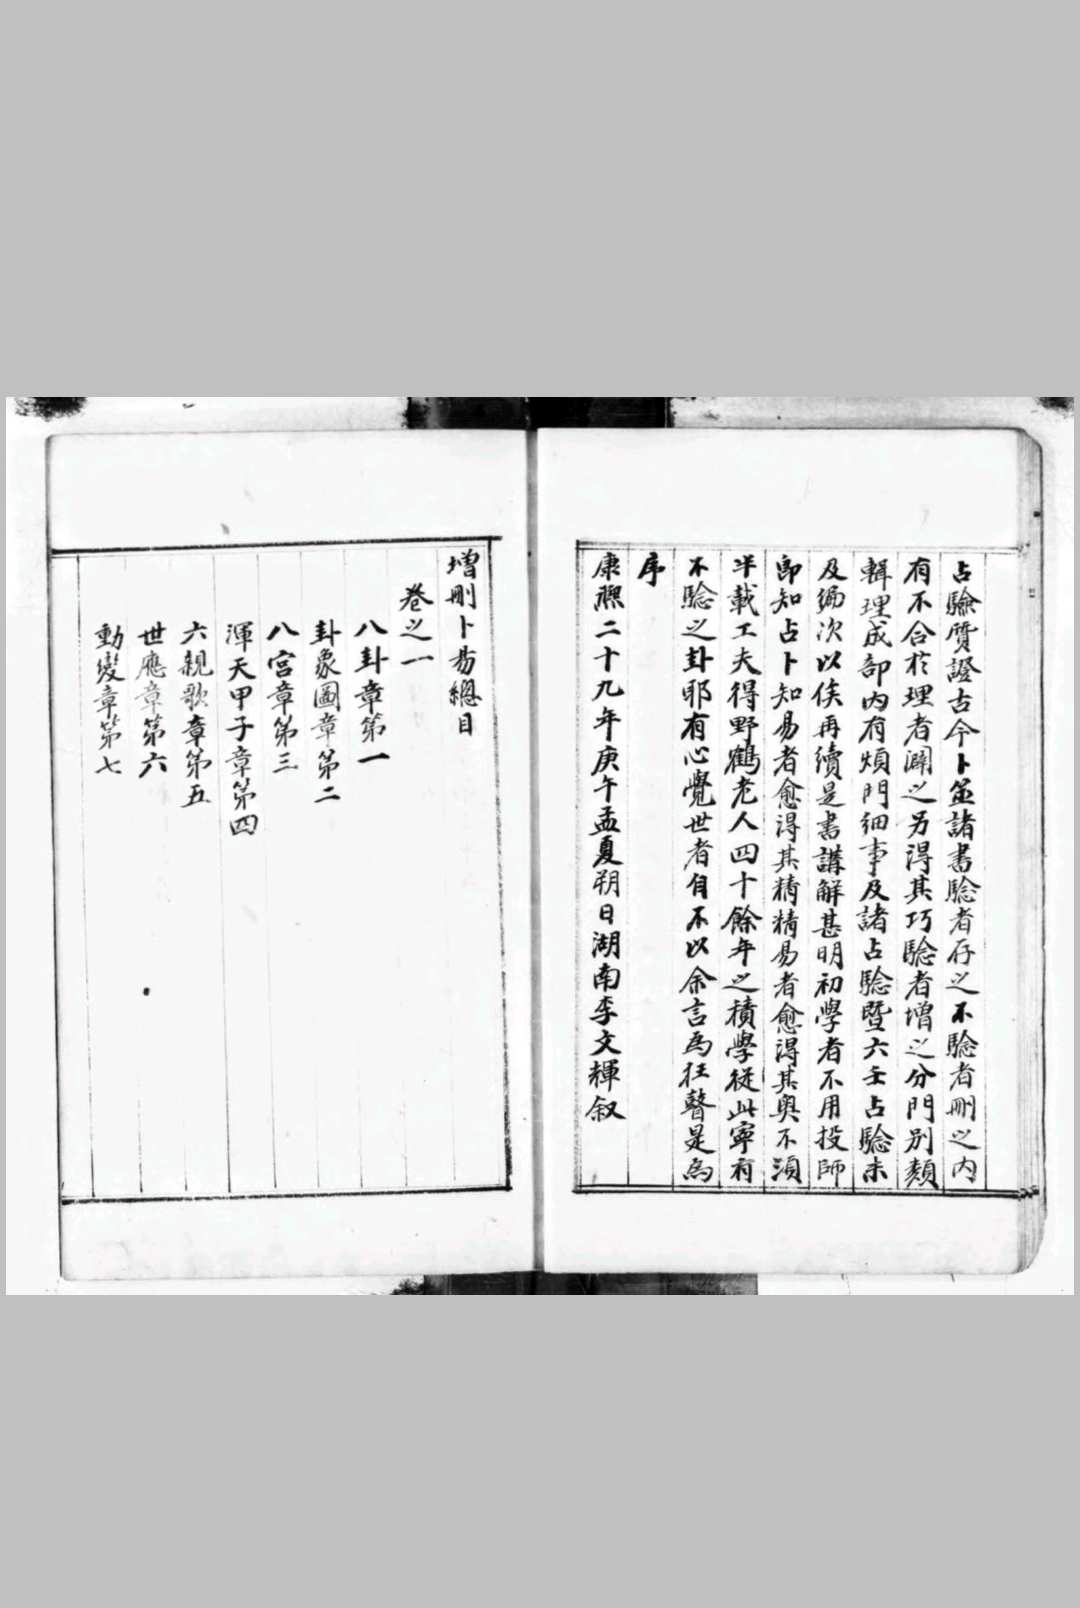 占驗質證古今卜筮諸書驗者存之不驗者刪之内
有不合於理者闢之另得其巧驗者增之分門別類
輯理成部内有煩門细事及諸占驗暨六壬占驗未
及编次以俟再續是書講解甚明初學者不用投師
即知占卜知易者愈得其精精易者愈得其奥不須
半載工夫得野鶴老人四十餘年之積學從此寧有
不驗之卦耶有心覺世者自不以余言為狂瞽是為
序
康熙二十九年庚午孟夏朔日湖南李文輝叙
增刪卜易總目
卷之一
八卦章第一
卦象圖章第二
八宫章第三
渾天甲子章第四
六親歌章第五
世應章第六
動變章第七